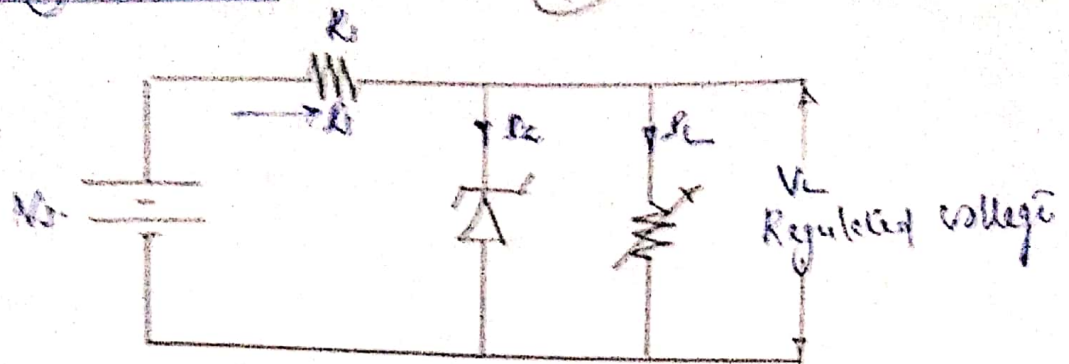 Rs
Is
Iz
IL
Vs
VL
Regulated voltage